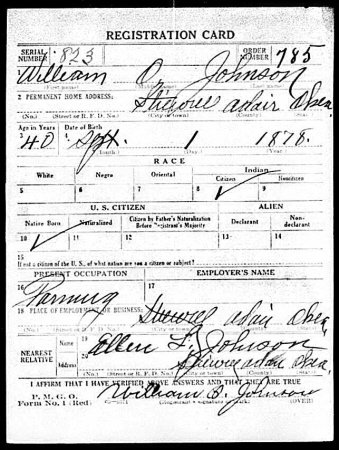 REGISTRATION CARD
SERIAL NUMBER 823 ORDER NUMBER 785
William O. Johnson
(First name) (Last name)
2 PERMANENT HOME ADDRESS:
Adair Okla
(No.) (Street or R. F. D. No.) (City or town) (County) (State)
Age in Years Date of Birth
3 40 4 Sept. 1 1878.
(Month.) (Day.) (Year.)
RACE
White Negro Oriental Indian
Citizen Noncitizen
5 6 7 8 ✓ 9
U. S. CITIZEN ALIEN
Native Born Naturalized Citizen by Father's Naturalization Before Registrant's Majority Declarant Non-declarant
10 ✓ 11 12 13 14
15
If not a citizen of the U. S., of what nation are you a citizen or subject?
PRESENT OCCUPATION EMPLOYER'S NAME
16 Farming 17
18 PLACE OF EMPLOYMENT OR BUSINESS:
Adair Okla
(No.) (Street or R. F. D. No.) (City or town) (County) (State)
NEAREST RELATIVE Name 19 Ellen F. Johnson
Address 20 Adair Okla.
(No.) (Street or R. F. D. No.) (City or town) (County) (State)
I AFFIRM THAT I HAVE VERIFIED ABOVE ANSWERS AND THAT THEY ARE TRUE
P. M. G. O.
Form No. 1 (Red) William O. Johnson
(Registrant's signature or mark) (OVER)